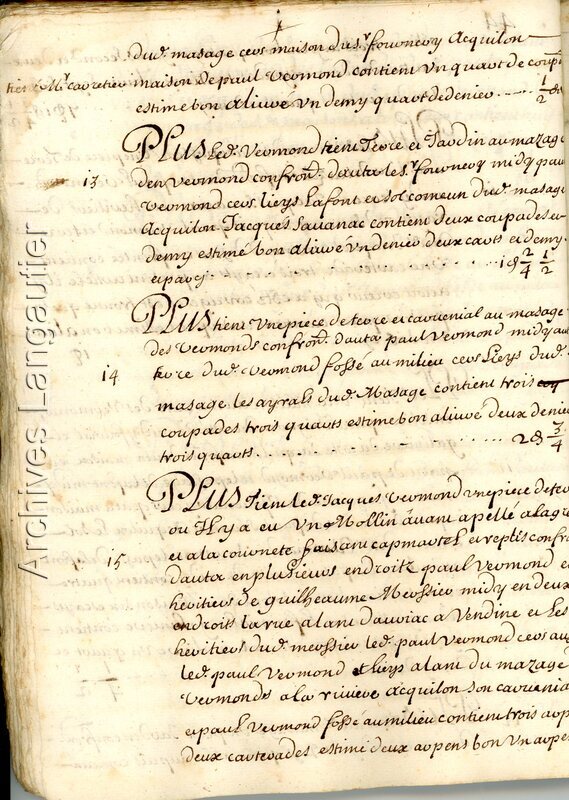 dud. masage cers maison du sr. fournery Acquilon
maison de paul Vermond contient Un quart de coup
estime bon aliuré Un demy quart de denier 1/2 d
13
PLUS led. Vermond tient Terre et Jardin au mazage
den Vermond confrond. dauta le sr. fournery midy paul
Vermond cers lieys Lafont et sol comeun dud. masage
Acquilon Jacques Sauanac contient deux coupades et
demy estimé bon aliuré Un denier deux carts et demy
1 d 2/4 1/2
14
PLUS tient Une piece de terre et carrenial au masage
des Vermonds confrond. dauta paul Vermond midy
terre dud. Vermond fossé au milieu cers Lieys dud.
masage les ayrals dud. Masage contient trois
coupades trois quarts estime bon aliuré deux denie
trois quarts 2 d 3/4
15
PLUS Tient led. Jacques Vermond Une piece de ter
ou Il y a eu Un Mollin auant apellé a lagr
et a la couronete faisant capmartel et replis confr
dauta en plusieurs endroitz paul Vermond et
heritiers de guilheaume Messier midy en deux
endroits la rue alant dauriac a Vendine et Les
heritiers dud. messier led. paul Vermond cers au
led. paul Vermond et lieys alant du mazage
Vermonds a la riuiere acquilon son carrenia
et paul Vermond fossé au milieu contient trois arp
deux carterades estimé deux arpens bon Un arpen
Archives Langautier